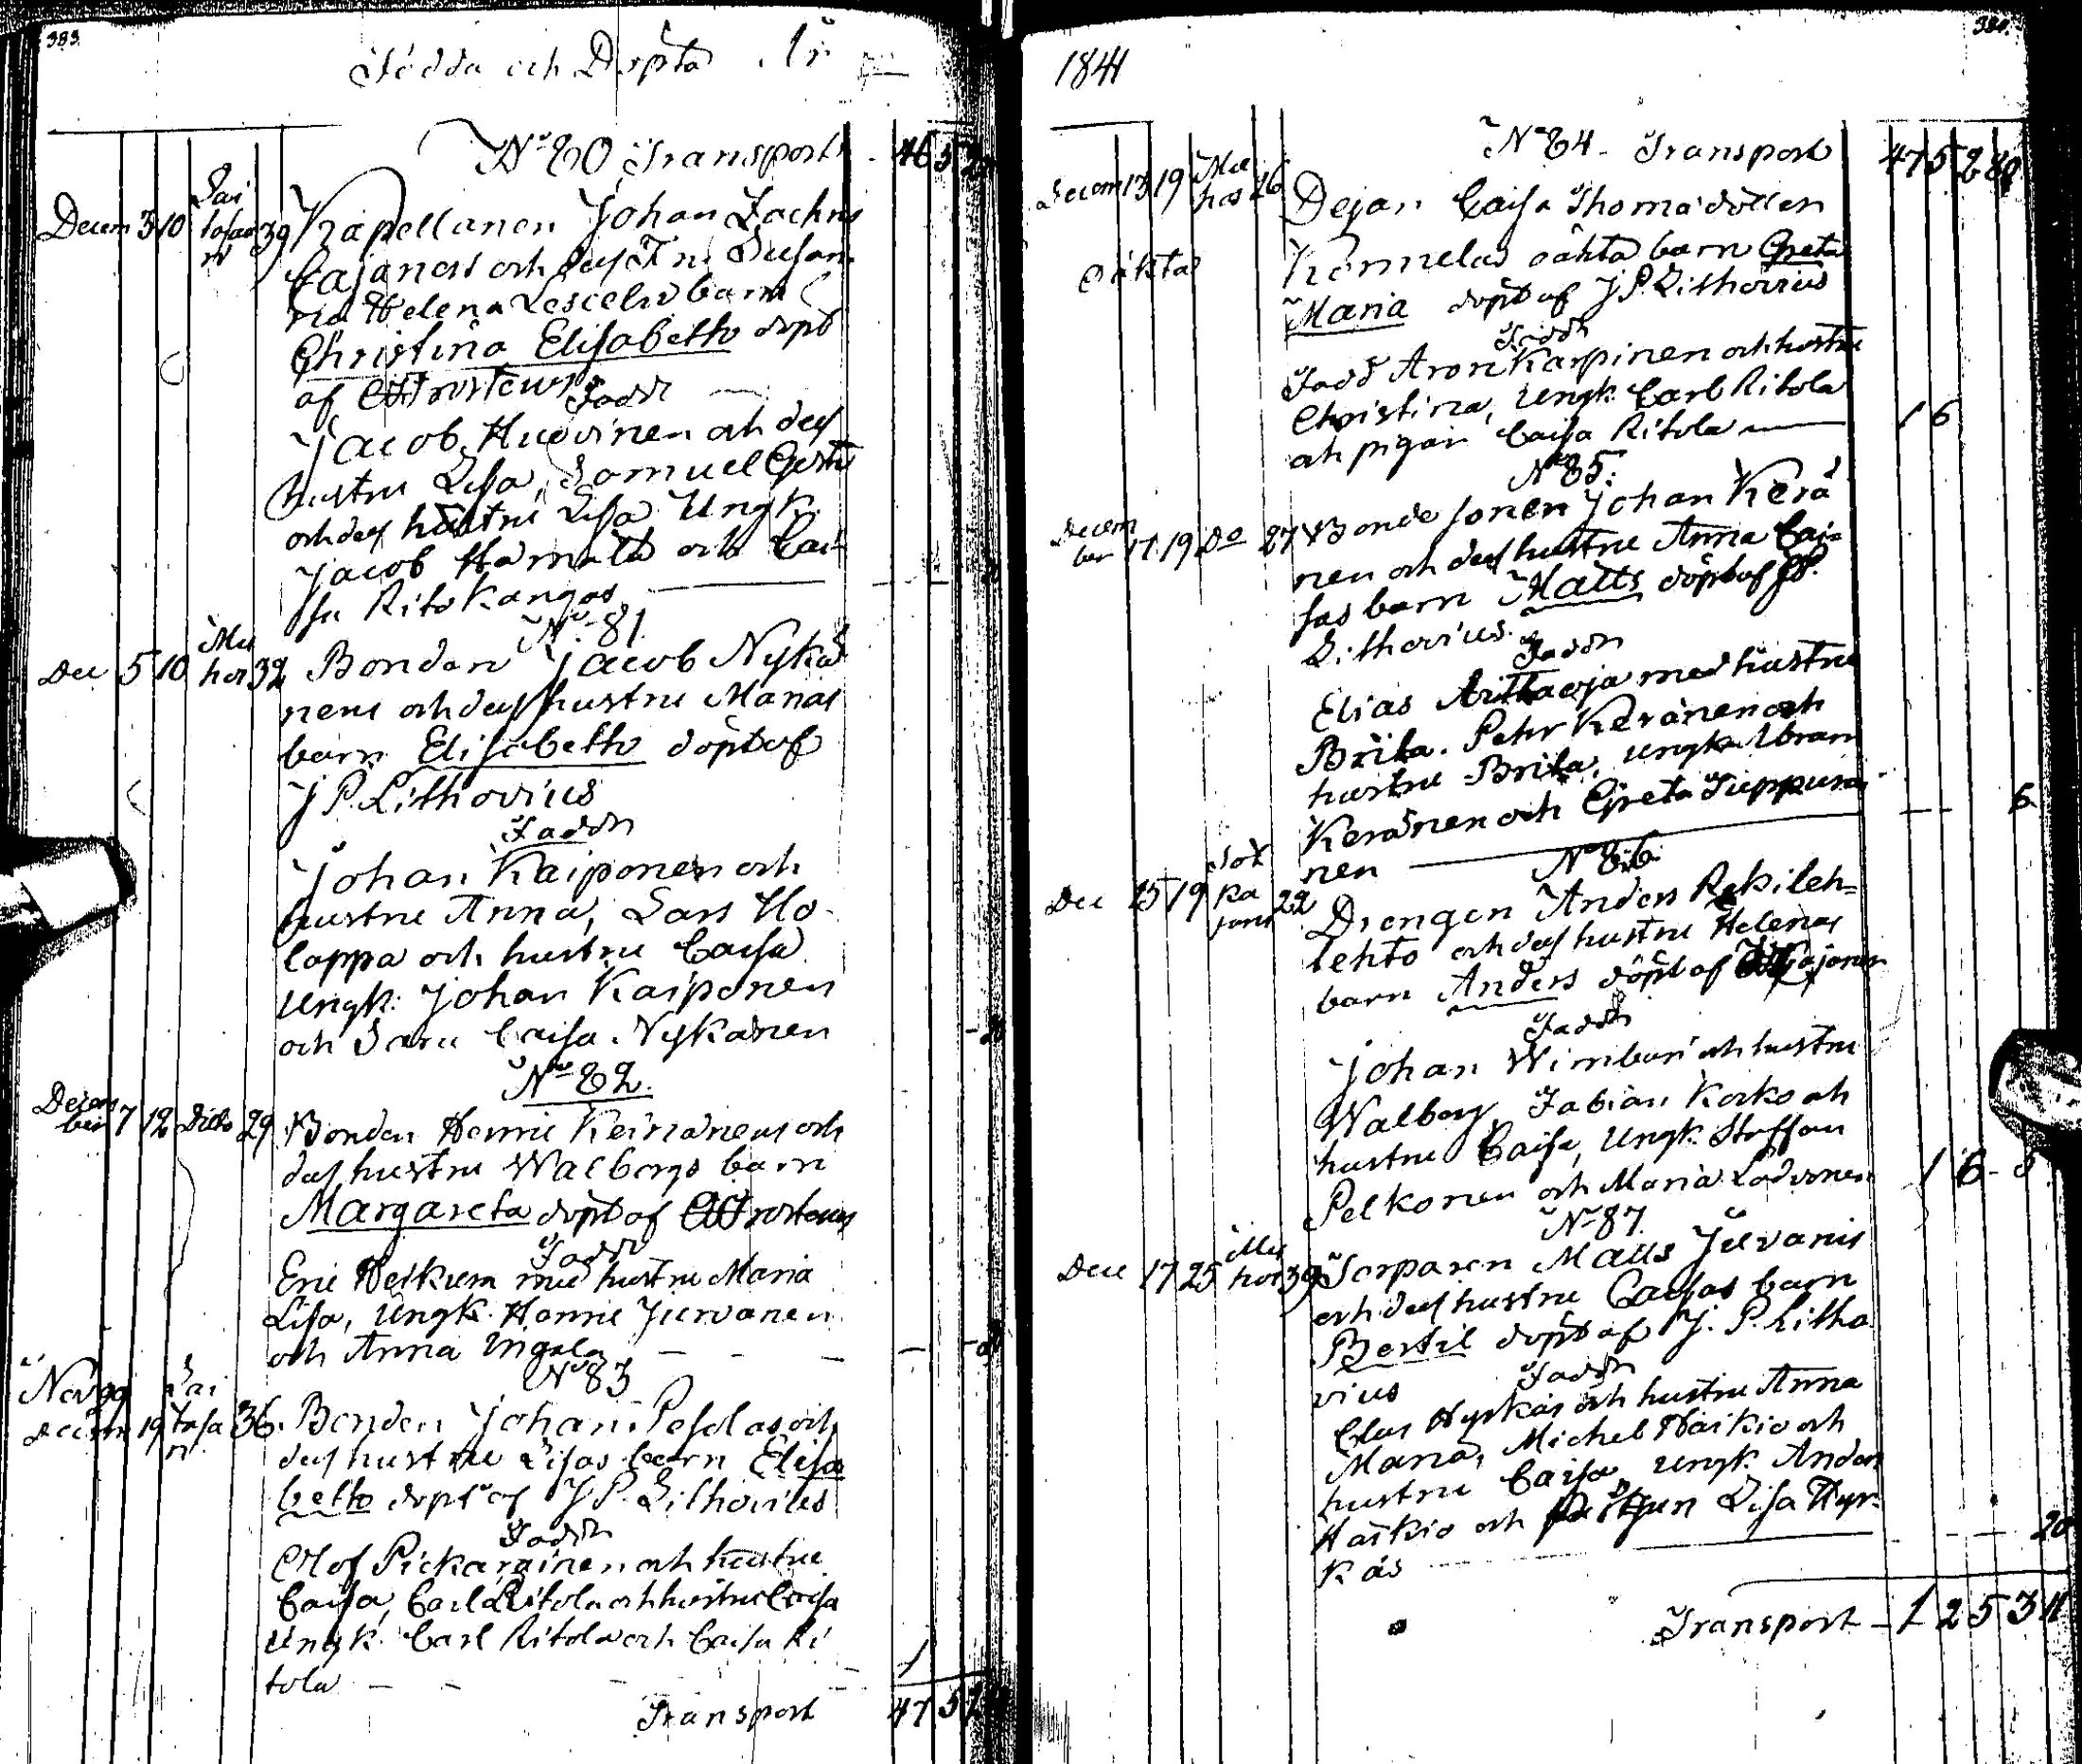 383.
Födda och Döpta År
N° 80 Transport - 46 5
Decem 3 10 39 Kapellanen Johan Zachris
Cajanus och dess Fru Susan-
na Helena Lescelii barn
Christina Elisabeth döpt
af
Fadd
Jacob Huovinen och dess
hustru Lisa, Samuel
och dess hustru Lisa Ungk.
Jacob och Cai-
sa Ritokangas
N° 81
Dec 5 10 Mu hos 32 Bonden Jacob Nykä
nens och dess hustru Marias
barn Elisabeth döpt af
J P. Lithovius
Faddr
Johan Kaiponen och
hustru Anna, Lars Ho-
lappa och hustru Caisa
Ungk: Johan Kaiponen
och Caisa Nykänen
N° 82.
Decem ber 7 12 Ditto 29 Bonden Henric Keränens och
dess hustru Walborgs barn
Margareta döpt af
Fadd
Eric med hustru Maria
Lisa, Ungk. Henric Jurvanen
och Anna
N° 83
Nov 30 Decem 19 36. Bonden Johan och
dess hustru Lisas barn Elisa
beth döpt af J P. Lithovius
Faddr
Olof Pickarainen och hustru
Caisa, Carl Ritola och hustru Caisa
Ungk. Carl Ritola och Caisa Ri
tola - - - 1
Transport 47 5
384.
1841
N° 84 - Transport 47 5 2 80
Decem 13 19 Mu hos 26 Dejan Caisa Thomasdotter
oäkta Kemmelas oäkta barn Greta
Maria döpt af J P. Lithovius
Faddr
Fadd Aron Karpinen och hustru
Christina, Ungk. Carl Ritola
och pigan Caisa Ritola 1 6
N° 85.
Decem ber 17 19 D° 27 Bonde Sonen Johan Kerä
nen och dess hustru Anna Cai=
sas barn Matts döpt af JP.
Lithovius.
Faddr
Elias med hustru
Brita. Pehr Keränen och
hustru Brita, ungk. Abram
Keränen och Greta Tuppurai
nen
N° 86
Dec 15 19 22 Drengen Anders
lehto och dess hustru Helenas
barn Anders döpt af Cajanus
Faddr
Johan Wimbari och hustru
Walborg, Fabian Korko och
hustru Caisa, Ungk. Staffan
Pelkonen och Maria 1 6 - 8
N° 87
Dec 17 25 Mu hos 39 Torparen Matts Jurvanis
och dess hustru Caisas barn
Bertil döpt af J. P. Litho
vius
Faddr
Clas Hyrkäs och hustru Anna
Maria, Michel Häikiö och
hustru Caisa, Ungk. Anders
Häikiö och Lisa Hyr-
käs 20
Transport - 1 2 5 3 11